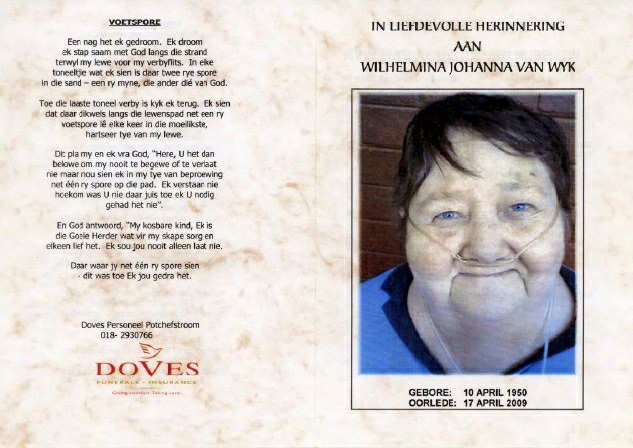 VOETSPORE
Een nag het ek gedroom. Ek droom
ek stap saam met God langs die strand
terwyl my lewe voor my verbyflits. In elke
toneeltjie wat ek sien is daar twee rye spore
in die sand – een ry myne, die ander dié van God.
Toe die laaste toneel verby is kyk ek terug. Ek sien
dat daar dikwels langs die lewenspad net een ry
voetspore lê elke keer in die moeilikste,
hartseer tye van my lewe.
Dit pla my en ek vra God, "Here, U het dan
belowe om my nooit te begewe of te verlaat
nie maar nou sien ek in my tye van beproewing
net één ry spore op die pad. Ek verstaan nie
hoekom was U nie daar juis toe ek U nodig
gehad het nie".
En God antwoord, "My kosbare kind, Ek is
die Goeie Herder wat vir my skape sorg en
elkeen lief het. Ek sou jou nooit alleen laat nie.
Daar waar jy net één ry spore sien
- dit was toe Ek jou gedra het.
Doves Personeel Potchefstroom
018- 2930766
DOVES
FUNERALS - INSURANCE
Giving comfort. Taking care.
IN LIEFDEVOLLE HERINNERING
AAN
WILHELMINA JOHANNA VAN WYK
GEBORE: 10 APRIL 1950
OORLEDE: 17 APRIL 2009